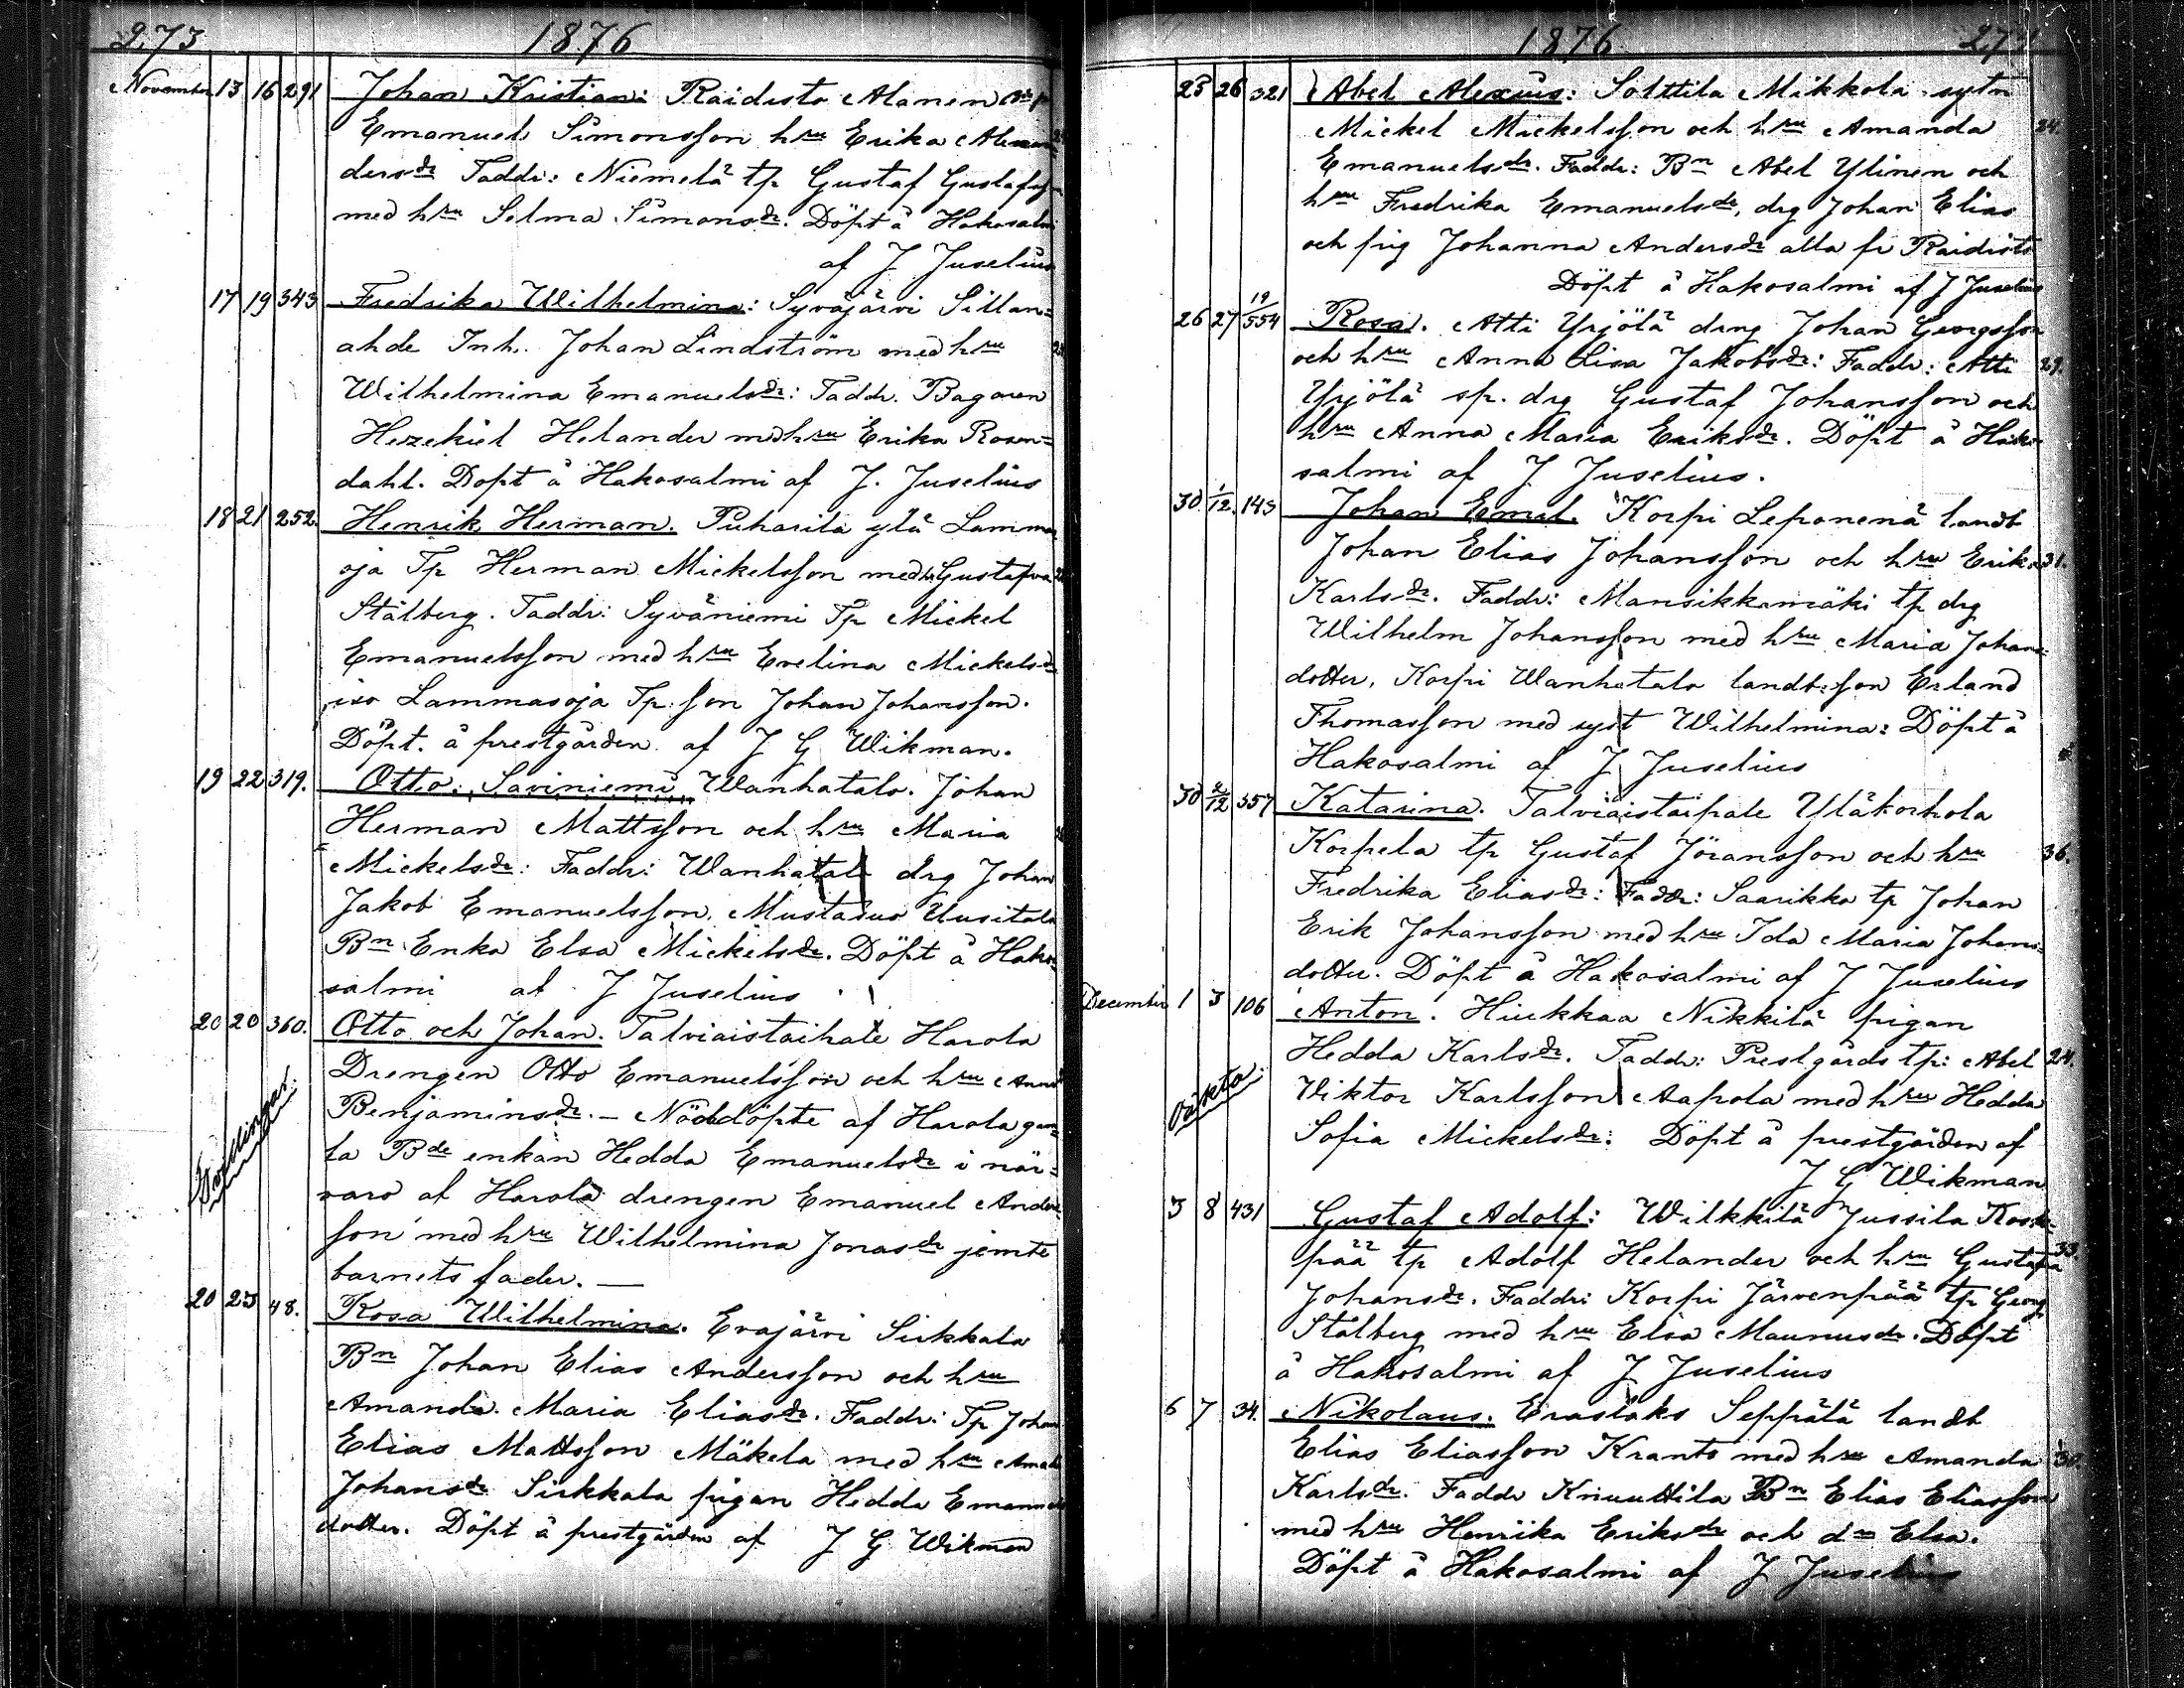 273 1876
November 13 16 291 Johan Kristian: Raidisto Alanen
Emanuel Simonsson hru Erika Alexan
dersdr Faddr: Niemelä tp Gustaf Gustafss
med hru Selma Simonsdr. Döpt å Hakosalmi
af J Juselius
17 19 343 Fredrika Wilhelmina: Syväjärvi Sillan=
ahde Inh. Johan Lindström med hru
Wilhelmina Emanuelsdr: Faddr. Bagaren
Hezekiel Helander med hru Erika Rosen=
dahl. Döpt å Hakosalmi af J. Juselius
18 21 252. Henrik Herman. Puharila ylä Lammas
oja Tp Herman Mickelsson med h Gustafva
Stålberg. Faddr: Syväniemi Tp Mickel
Emanuelsson med hru Evelina Mickelsdr
iso Lammasoja Tp. son Johan Johansson.
Döpt. å prestgården af J G Wikman.
19 22 319. Otto. Saviniemi Wanhatalo. Johan
Herman Mattsson och hru Maria
Mickelsdr: Faddr: Wanhatal drg Johan
Jakob Emanuelsson. Mustasuo Uusitalo
Bn Enka Elsa Mickelsdr. Döpt å Hako=
salmi af J Juselius
20 20 360. Otto och Johan. Talviaistaihale Harola
Tvillingar.
Drengen Otto Emanuelsson och hru Anna
Benjaminsdr. – Nöddöpte af Harola gam=
la Bde enkan Hedda Emanuelsdr i när=
varo af Harola drengen Emanuel Anders
son med hru Wilhelmina Jonasdr jemte
barnets fader. —
20 23 48. Rosa Wilhelmina. Evajärvi Sirkkala
Bn Johan Elias Andersson och hru
Amanda. Maria Eliasdr. Faddr: Tp Johan
Elias Mattsson Mäkela med hru Amanda
Johansdr Sirkkala pigan Hedda Emanuels
dotter. Döpt å prestgården af J G Wikman
1876 27
23 26 321 Abel Alexius: Solttila Mikkola sytn
Mickel Mickelsson och hru Amanda 24.
Emanuelsdr. Faddr: Bn Abel Ylinen och
hru Fredrika Emanuelsdr, drg Johan Elias
och pig Johanna Andersdr alla fr Raidisto
Döpt å Hakosalmi af J Juselius
26 27 19/554 Rosa. Atti Yrjölä drng Johan Georgsson
och hru Anna Lisa Jakobsdr: Faddr: Atti 29.
Yrjölä sp. drg Gustaf Johansson och
hru Anna Maria Eriksdr. Döpt å Hako
salmi af J Juselius.
30 1/12. 143 Johan Emil. Korpi Leponenä landb
Johan Elias Johansson och hru Erika 31.
Karlsdr. Faddr: Mansikkamäki tp drg
Wilhelm Johansson med hru Maria Johans=
dotter, Korpi Wanhatalo landb. son Erland
Thomasson med syst Wilhelmina: Döpt å
Hakosalmi af J Juselius
30 2/12 357 Katarina. Talviaistaipale Yläkorhola
Korpela tp Gustaf Jöransson och hru 36.
Fredrika Eliasdr: Faddr: Saarikko tp Johan
Erik Johansson med hru Ida Maria Johans=
dotter. Döpt å Hakosalmi af J Juselius
December 1 3 106 Anton. Hiukkaa Nikkilä pigan
Oäkta.
Hedda Karlsdr. Faddr: Prestgårds tp: Abel 24.
Viktor Karlsson Aapola med hru Hedda
Sofia Mickelsdr: Döpt å prestgården af
J G Wikman
3 8 431 Gustaf Adolf: Wilkkilä Jussila Koske
pää tp Adolf Helander och hru Gustafva 33.
Johansdr. Faddr: Korpi Järvenpää tp Georg
Stålberg med hru Elsa Maunusdr. Döpt
å Hakosalmi af J Juselius
6 7 34. Nikolaus. Eräslaks Seppälä landb
Elias Eliasson Krants med hru Amanda 30.
Karlsdr. Faddr Knuuttila Bn Elias Eliasson
med hru Henriika Eriksdr och dr Elsa.
Döpt å Hakosalmi af J Juselius